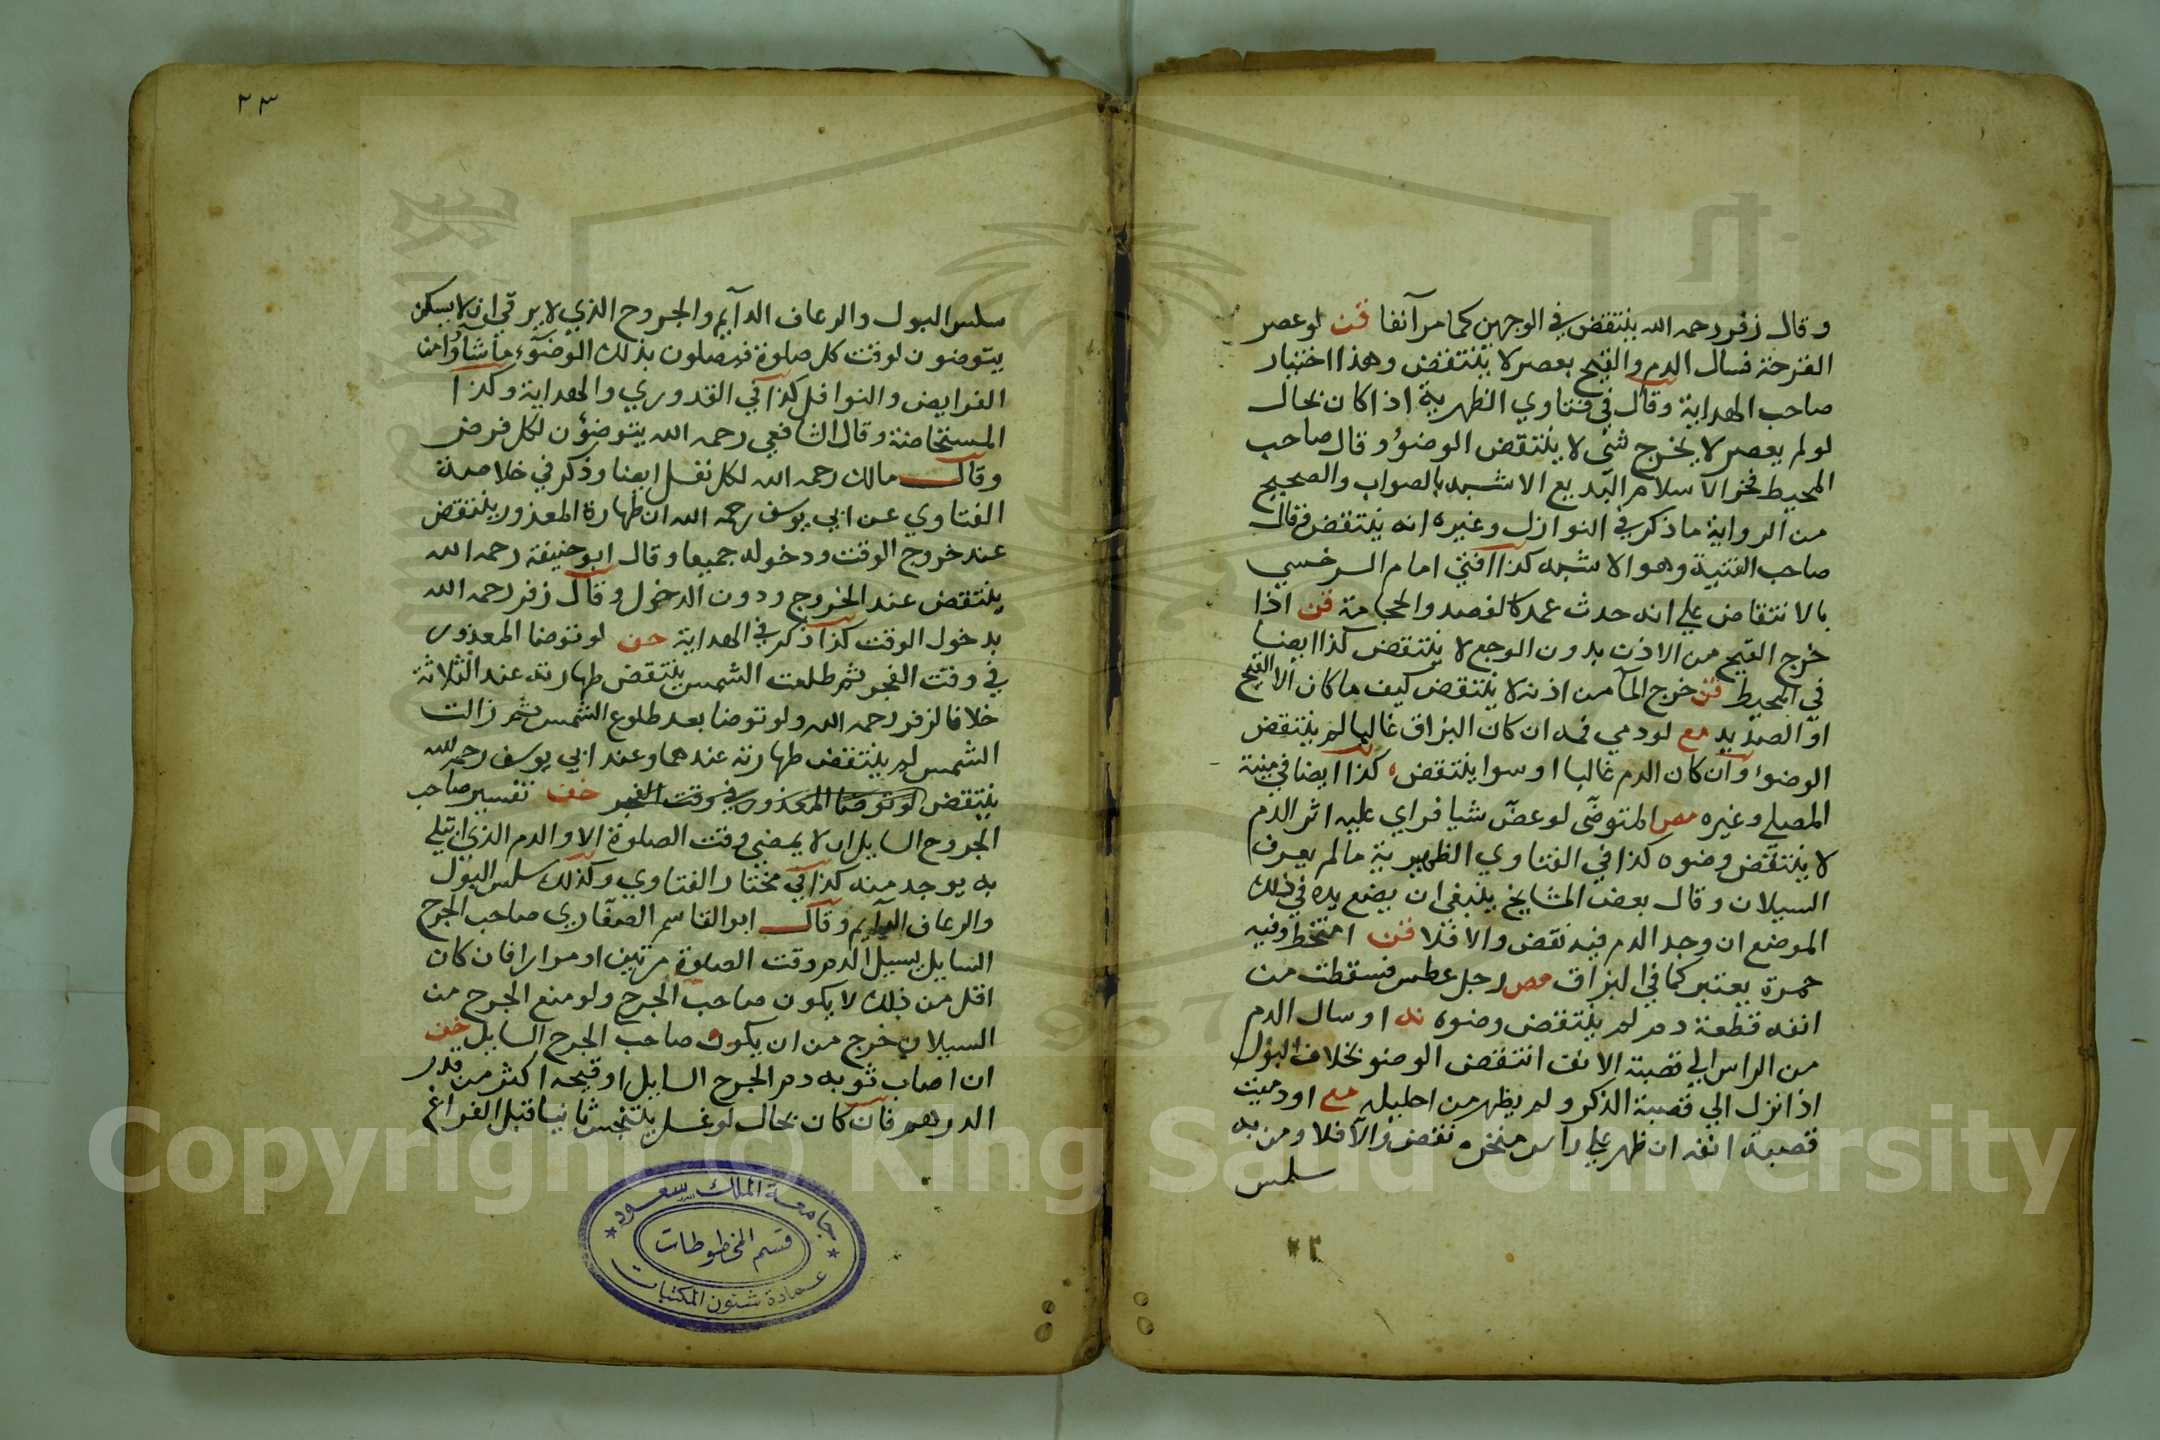 وقال زفر رحمه الله ينتقض في الوجهين كما مر آنفا فن لو عصر
القرحة فسال الدم والقيح بعصر لا ينتقض وهذا اختيار
صاحب الهداية وقال في فتاوي الظهرية اذا كان بحال
لو لم يعصر لا يخرج شئ لا ينتقض الوضوء وقال صاحب
المحيط فخر الاسلام البديع الاشبه بالصواب والصحيح
من الرواية ما ذكر في النوازل وغيره انه ينتقض فقال
صاحب القنية وهو الاشبه كذا افتي امام السرخسي
بالانتقاض علي انه حدث عمد كالفصد والحجامة فن اذا
خرج القيح من الاذن بدون الوجع لا ينتقض كذا ايضا
في المحيط فن خرج المآ من اذنه لا ينتقض كيف ما كان الا القيح
او الصديد مع لو دمي فمه ان كان البزاق غالبا لم ينتقض
الوضوء وان كان الدم غالبا او سوا ينتقض كذا ايضا في منية
المصلي وغيره مص المتوضئ لو عض شيا فراي عليه اثر الدم
لا ينتقض وضوه كذا في الفتاوي الظهيرية ما لم يعرف
السيلان وقال بعض المشايخ ينبغي ان يضع يده في ذلك
الموضع ان وجد الدم فيه نقض والا فلا فن امتخط وفيه
حمرة يعتبر كما في البزاق مص رجل عطس فسقطت من
انفه قطعة دم لم ينتقض وضوه ند او سال الدم
من الراس الي قصبة الانف انتقض الوضو بخلاف البول
اذا نزل الي قصبة الذكر ولم يظهر من احليله مع او دميت
قصبة انفه ان ظهر علي راس منخره نقض والا فلا ومن به
سلس
٢٢
٢٣
سلس البول والرعاف الدآيم والجروح الذي لا يرقي ان لا يسكن
يتوضون لوقت كل صلوة فيصلون بذلك الوضوء ما شآؤا من
الفرايض والنوافل كذا في القدوري والهداية وكذا
المستحاضة وقال الشافعي رحمه الله يتوضؤن لكل فرض
وقال مالك رحمه الله لكل نفل ايضا وذكر في خلاصة
الفتاوي عن ابي يوسف رحمه الله ان طهارة المعذور ينتقض
عند خروج الوقت ودخوله جميعا وقال ابو حنيفة رحمه الله
ينتقض عند الخروج ودون الدخول وقال زفر رحمه الله
بدخول الوقت كذا ذكر في الهداية حن لو توضا المعذور
في وقت الفجر ثم طلعت الشمس ينتقض طهارته عند الثلاثة
خلافا لزفر رحمه الله ولو توضا بعد طلوع الشمس ثم زالت
الشمس لم ينتقض طهارته عندهما وعند ابي يوسف رحمه الله
ينتقض لو توضا المعذور في وقت الفجر خف تفسير صاحب
الجروح السايل ان لا يمضي وقت الصلوة الا والدم الذي ابتلي
به يوجد منه كذا في مختار الفتاوي وكذلك سلس البول
والرعاف الدآيم وقال ابو القاسم الصفاري صاحب الجرح
السايل يسيل الدم وقت الصلوة مرتين او مرارا فان كان
اقل من ذلك لا يكون صاحب الجرح ولو منع الجرح من
السيلان خرج من ان يكون صاحب الجرح السايل خف
ان اصاب ثوبه دم الجرح السايل او قيحه اكثر من قدر
الدرهم فان كان بحال لو غسل يتنجس ثانيا قبل الفراغ
جامعة الملك سعود
قسم المخطوطات
عمادة شئون المكتبات
Copyright © King Saud University
1957